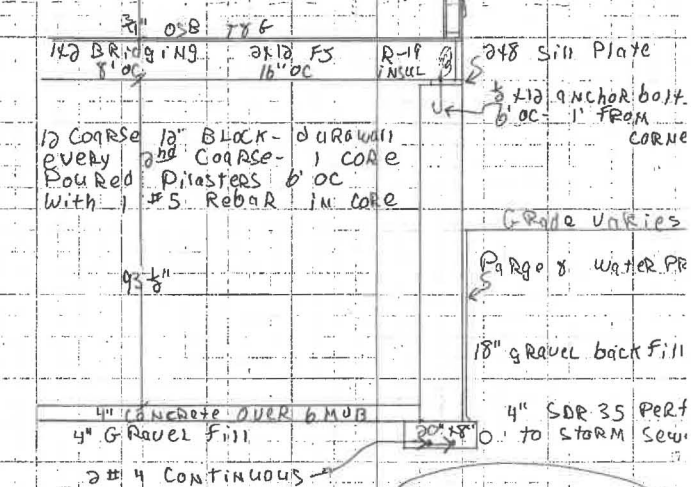 3/4" OSB T&G
1x2 BRidgiNg 2x12 FJ R-19 2x8 Sill Plate
8' OC 16" OC iNSUL
1/2 x12 aNchoR bolt
6' OC- 1' FROM
CORNE
12 COARSE 12" BLOCK- duRawall
eveRy 2nd COARSE- 1 CORE
Poured Pilasters 6' OC
With 1 #5 RebaR iN CORE
GRade vaRies
93 1/2"
PaRge & WateR PR
18" gRavel back fill
4" CONCRete OVER 6 MVB
4" GRavel fill
20" x8"
4" SDR 35 PeRf
to StoRM Sew
2 #4 CONtiNuouS